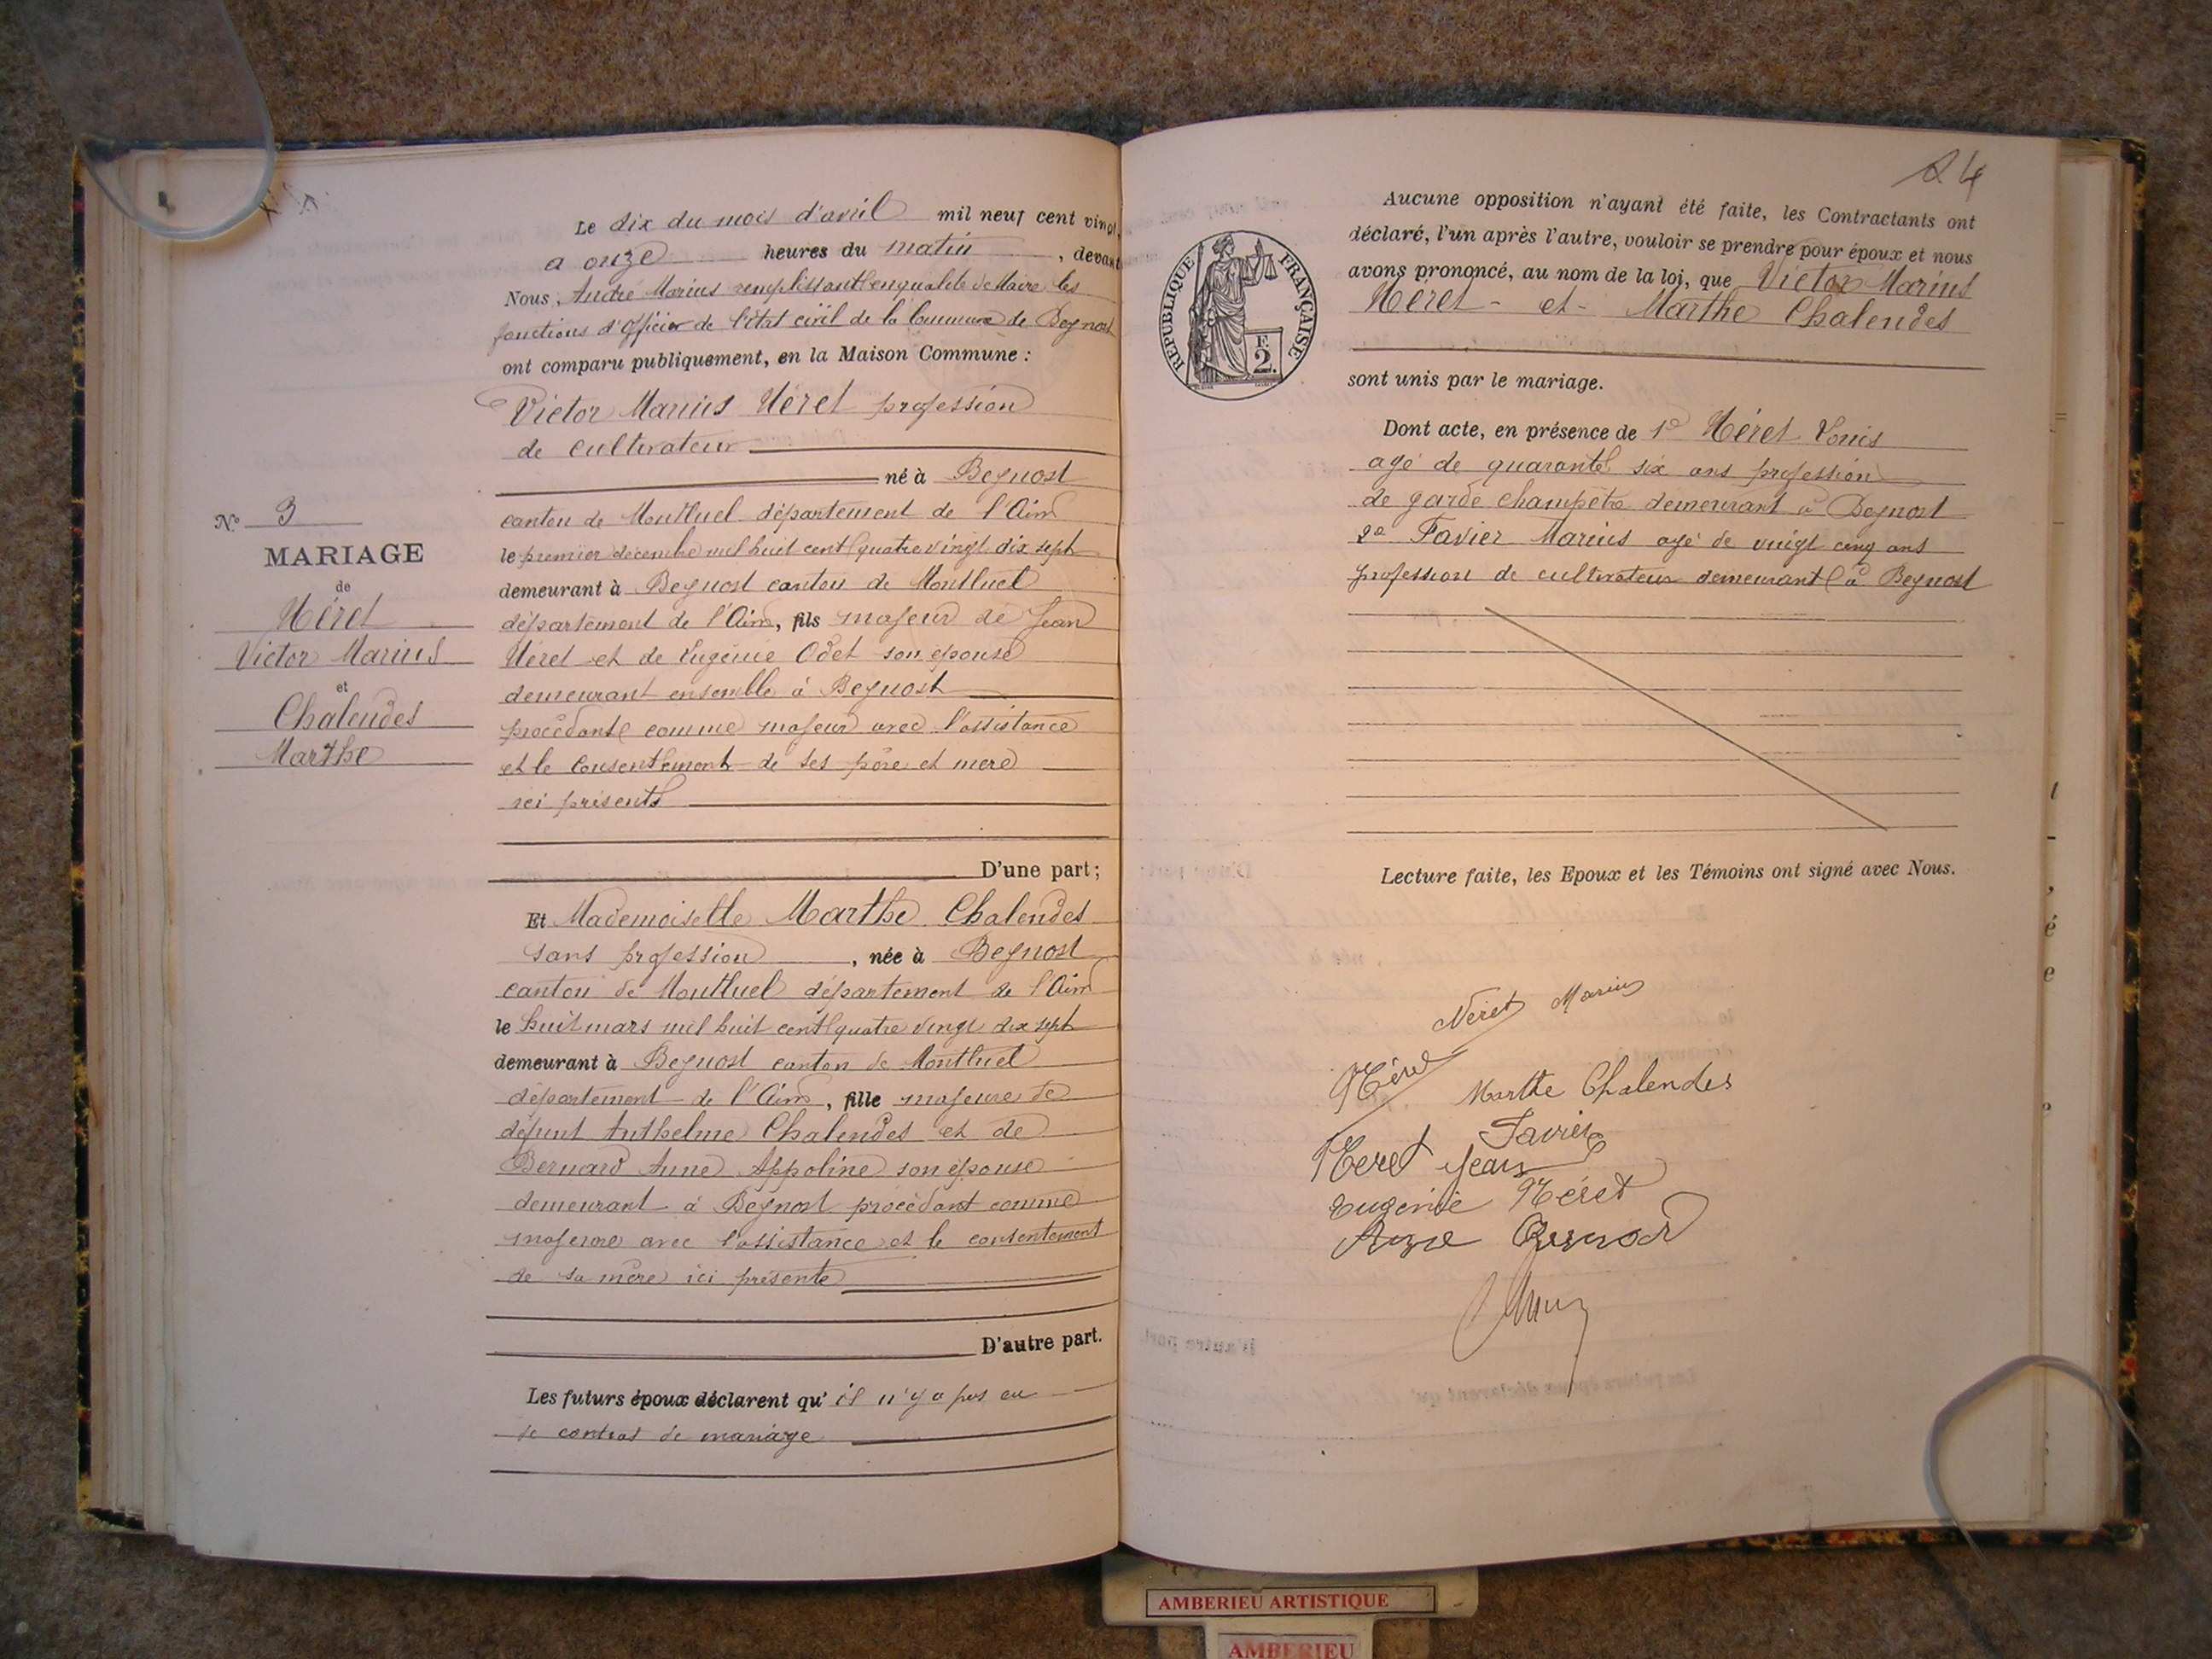 Le dix du mois d'avril mil neuf cent vingt,
a onze heures du matin, devant
Nous, André Marius remplissant en qualité de Maire les
fonctions d'Officier de l'état civil de la Commune de Beynost
ont comparu publiquement, en la Maison Commune :
Victor Marius Néret profession
de cultivateur
né à Beynost
canton de Montluel département de l'Ain
le premier décembre mil huit cent quatre vingt dix sept
demeurant à Beynost canton de Montluel
département de l'Ain, fils majeur de Jean
Néret et de Eugénie Odet son épouse
demeurant ensemble à Beynost
procédant comme majeur avec l'assistance
et le Consentement de ses père et mère
ici présents
D'une part ;
N° 3
MARIAGE
de
Néret
Victor Marius
et
Chalendes
Marthe
Et Mademoiselle Marthe Chalendes
sans profession, née à Beynost
canton de Montluel département de l'Ain
le huit mars mil huit cent quatre vingt dix sept
demeurant à Beynost canton de Montluel
département de l'Ain, fille majeure de
défunt Anthelme Chalendes et de
Bernard Anne Appoline son épouse
demeurant à Beynost procédant comme
majeure avec l'assistance et le consentement
de sa mère ici présente
D'autre part.
Les futurs époux déclarent qu'il n'y a pas eu
de contrat de mariage
24
RÉPUBLIQUE FRANÇAISE
F.
2.
Aucune opposition n'ayant été faite, les Contractants ont
déclaré, l'un après l'autre, vouloir se prendre pour époux et nous
avons prononcé, au nom de la loi, que Victor Marius
Néret - et - Marthe Chalendes
sont unis par le mariage.
Dont acte, en présence de 1° Néret Louis
agé de quarante six ans profession
de garde champêtre demeurant à Beynost
2° Favier Marius agé de vingt cinq ans
profession de cultivateur demeurant à Beynost
Lecture faite, les Epoux et les Témoins ont signé avec Nous.
Néret Marius
Néret
Marthe Chalendes
Favier
Neret Jean
Eugénie Néret
Anne Bernard
AMBERIEU ARTISTIQUE
AMBERIEU